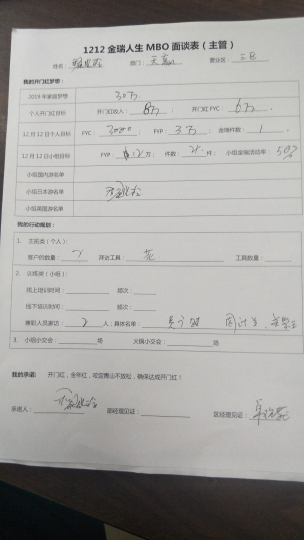 1212 金瑞人生 MBO 面谈表（主管）
姓名： 部门：天赢 营业区：三区
我的开门红梦想：
2019 年家庭梦想 30万
个人开门红目标 开门红收入：8万 开门红 FYC：6万
12 月 12 日个人目标 FYC：3000 FYP：3万 金瑞件数：1
12 月 12 日小组目标 FYP：12万 件数： 件；小组金瑞活动率：50%
小组国内游名单
小组日本游名单
小组英国游名单
我的行动规划：
1. 主拓类（个人）：
客户约量数： 拜访工具：花 工具数量：
2. 训练类（小组）：
线上培训时间： 频次：
线下培训时间： 频次：
兼职人员家访：2 人；具体名单：
3. 小组小交会： 场 火锅小交会： 场
我的承诺：
开门红，金年红，咬定青山不放松，确保达成开门红！
承诺人： 部经理见证： 区经理见证：